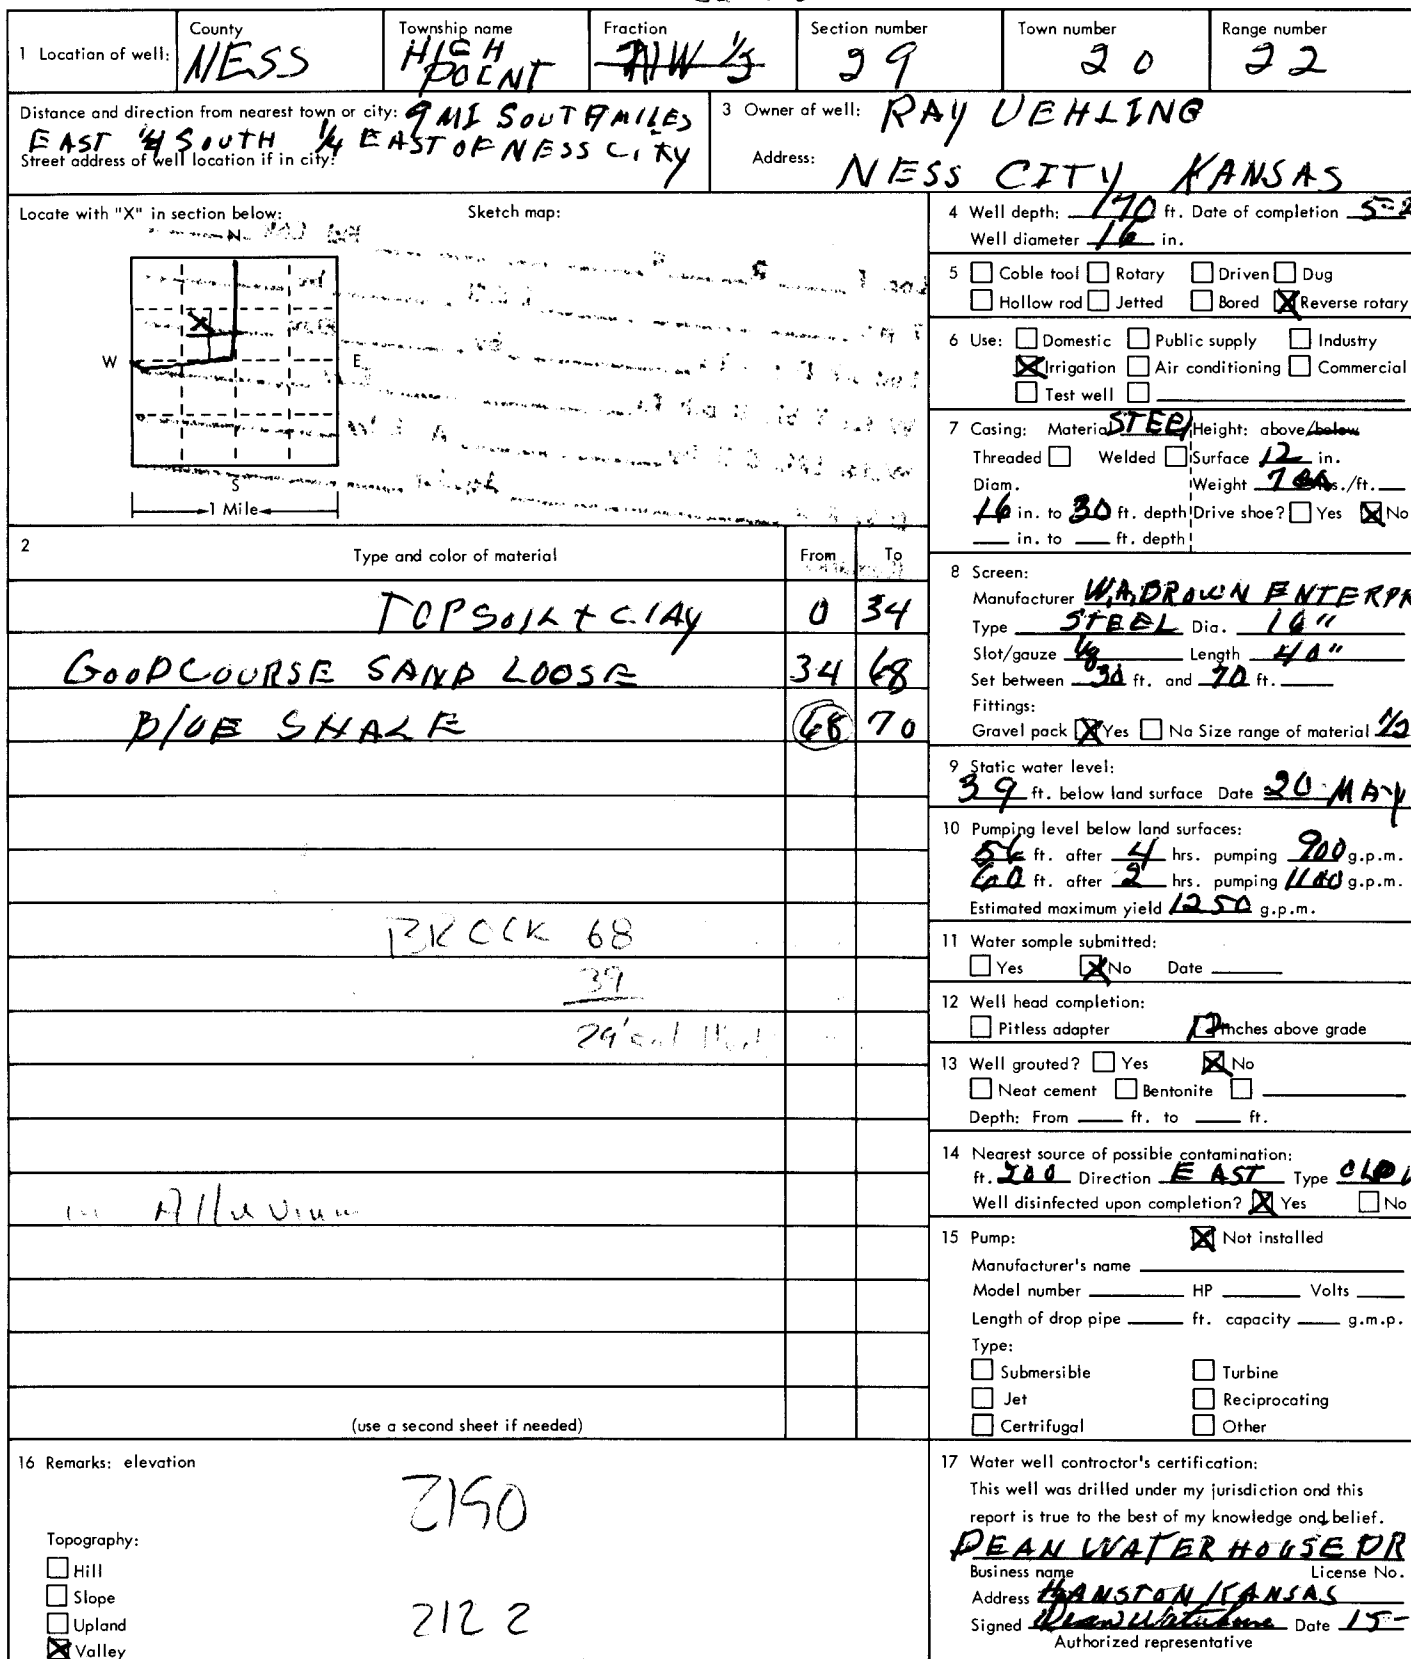 1 Location of well:
County
NESS
Township name
HIGH
POINT
Fraction
NW 1/5
Section number
29
Town number
20
Range number
22
Distance and direction from nearest town or city: 9 MI SOUTH 9 MILES
EAST 1/4 SOUTH 1/4 EAST OF NESS CITY
Street address of well location if in city:
3 Owner of well: RAY UEHLING
Address: NESS CITY KANSAS
Locate with "X" in section below:
Sketch map:
N
X
W
E
S
1 Mile
4 Well depth: 170 ft. Date of completion 5-2
Well diameter 16 in.
5 Cable tool Rotary Driven Dug
Hollow rod Jetted Bored X Reverse rotary
6 Use: Domestic Public supply Industry
X Irrigation Air conditioning Commercial
Test well
7 Casing: Material STEEL Height: above/below
Threaded Welded Surface 12 in.
Diam. Weight lbs./ft.
16 in. to 30 ft. depth Drive shoe? Yes X No
in. to ft. depth
2
Type and color of material
From
To
TOPSOIL + CLAY 0 34
GOOD COURSE SAND LOOSE 34 68
BLUE SHALE 68 70
BROCK 68
39
29'
in Alluvium
(use a second sheet if needed)
8 Screen:
Manufacturer W.A. BROWN ENTERPR
Type STEEL Dia. 16"
Slot/gauze 1/8 Length 40"
Set between 30 ft. and 70 ft.
Fittings:
Gravel pack X Yes No Size range of material 1/2
9 Static water level:
39 ft. below land surface Date 20 MAY
10 Pumping level below land surfaces:
56 ft. after 4 hrs. pumping 900 g.p.m.
60 ft. after 2 hrs. pumping 1100 g.p.m.
Estimated maximum yield 1250 g.p.m.
11 Water sample submitted:
Yes X No Date
12 Well head completion:
Pitless adapter 12 Inches above grade
13 Well grouted? Yes X No
Neat cement Bentonite
Depth: From ft. to ft.
14 Nearest source of possible contamination:
ft. 200 Direction EAST Type
Well disinfected upon completion? X Yes No
15 Pump: X Not installed
Manufacturer's name
Model number HP Volts
Length of drop pipe ft. capacity g.m.p.
Type:
Submersible Turbine
Jet Reciprocating
Certrifugal Other
16 Remarks: elevation
2150
Topography:
Hill
Slope
Upland
X Valley
2122
17 Water well contractor's certification:
This well was drilled under my jurisdiction and this
report is true to the best of my knowledge and belief.
DEAN WATERHOUSE DR
Business name License No.
Address HANSTON KANSAS
Signed Dean Waterhouse Date 15-
Authorized representative